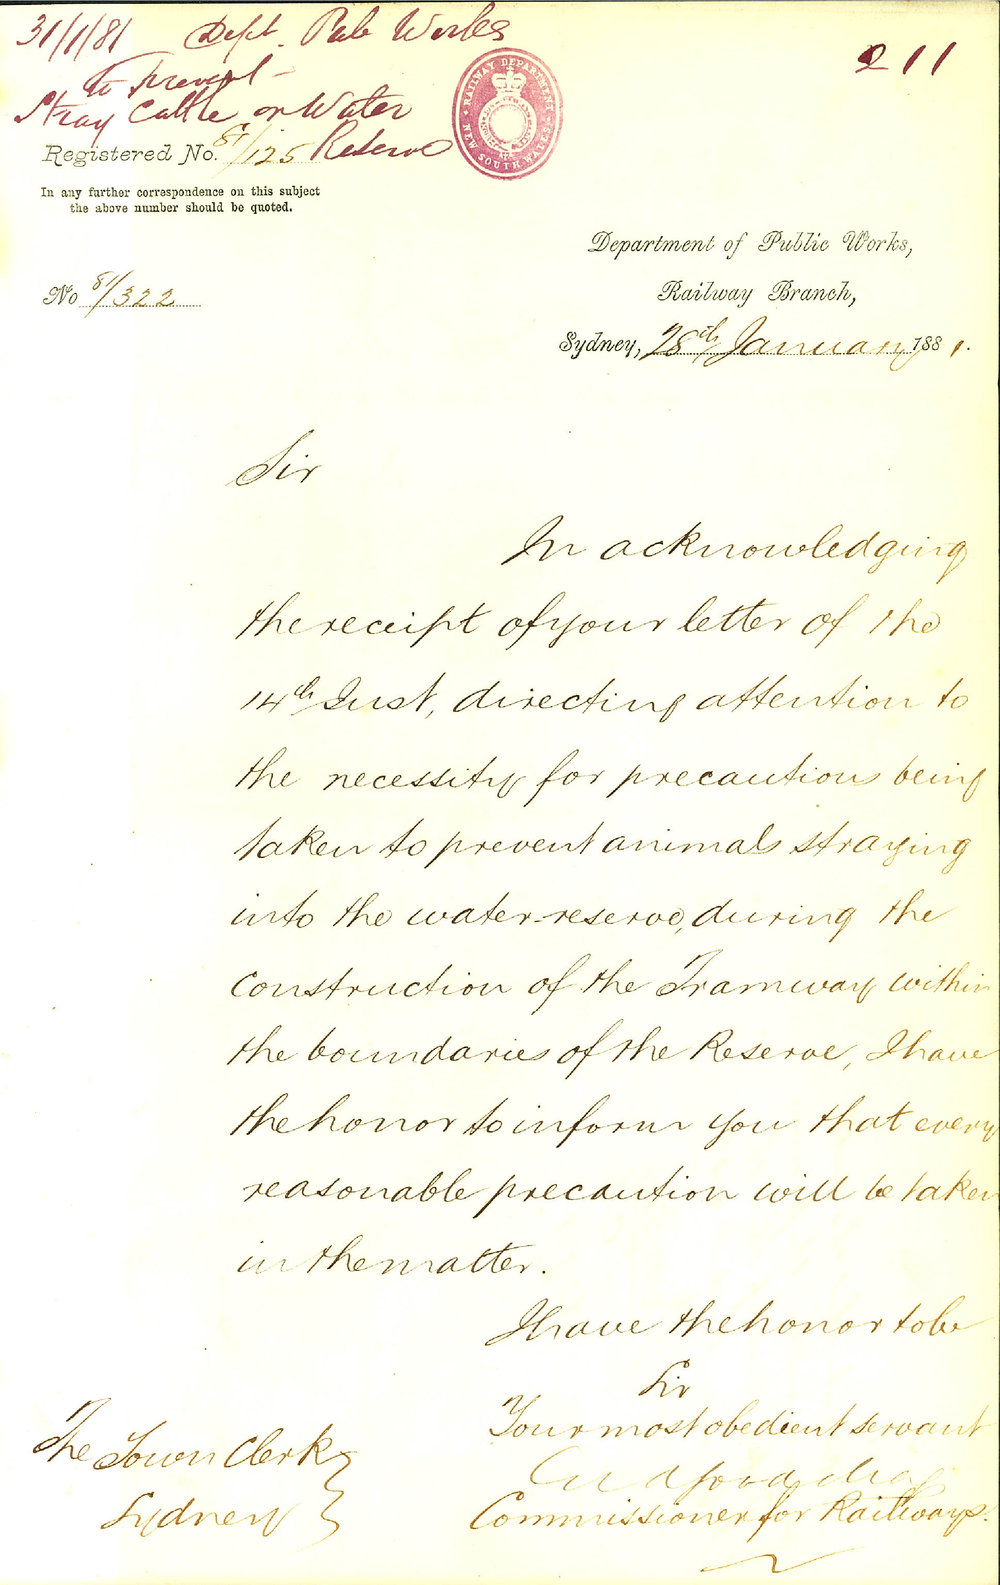 31/1/81 Dept. Pub Works
to prevent
Stray Cattle on Water
Reserve
211
RAILWAY DEPARTMENT
NEW SOUTH WALES
Registered No. 81/125
In any further correspondence on this subject
the above number should be quoted.
No 81/322
Department of Public Works,
Railway Branch,
Sydney, 28th January 1881.
Sir
In acknowledging
the receipt of your letter of the
14th Inst, directing attention to
the necessity for precautions being
taken to prevent animals straying
into the water-reserve, during the
construction of the Tramway within
the boundaries of the Reserve, I have
the honor to inform you that every
reasonable precaution will be taken
in the matter.
I have the honor to be
Sir
Your most obedient servant
Commissioner for Railways.
The Town Clerk
Sydney